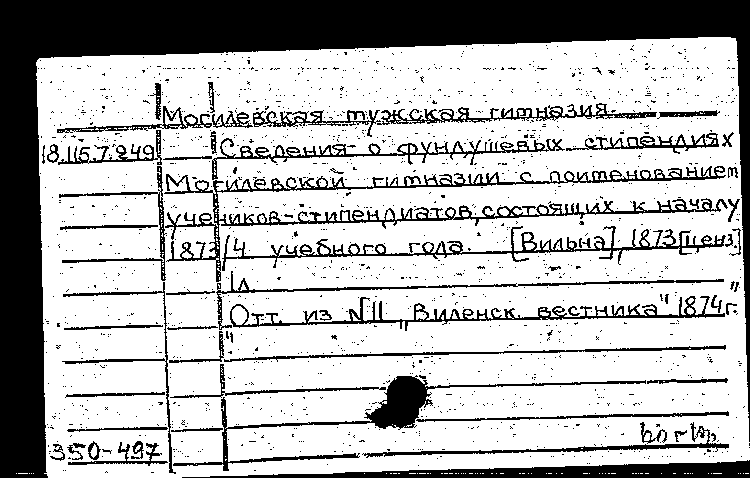 Могилевская мужская гимназия.
18.115.7.249 Сведения о фундушевых стипендиях
Могилевской гимназии с поименованием
учеников-стипендиатов, состоящих к началу
1873/4 учебного года. [Вильна], 1873 [ценз]
1л.
Отт. из №11 „Виленск. вестника" 1874г.
350-497